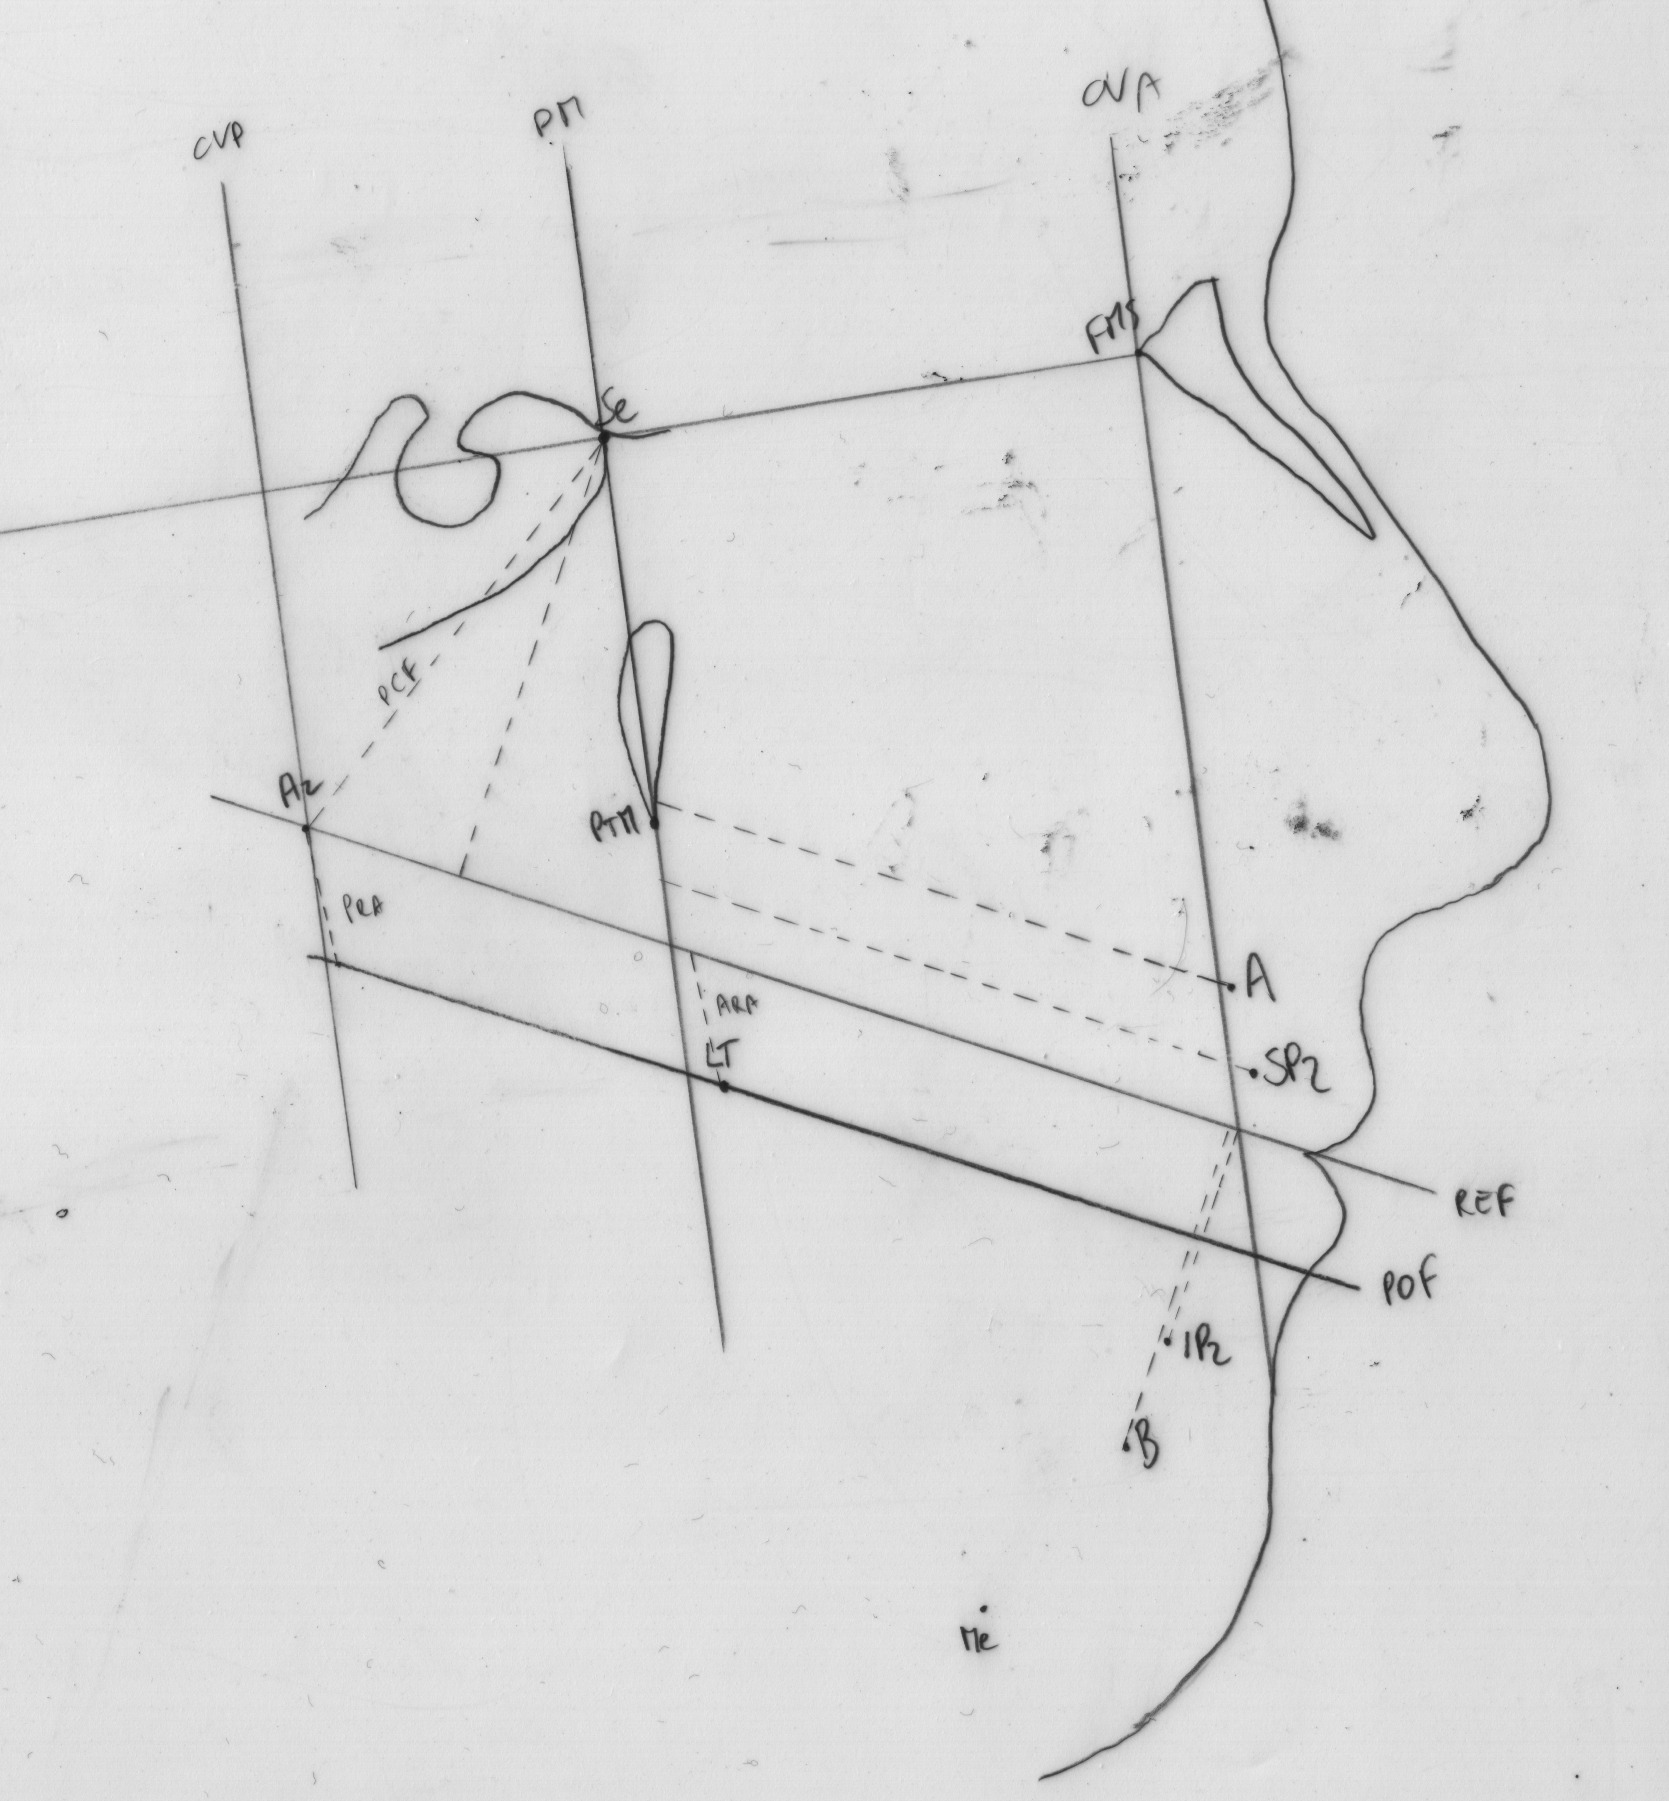 CVP
PM
CVA
FMS
Se
PCF
Ar
PTM
PRA
A
ARA
LT
SP2
REF
POF
IP2
B
Me